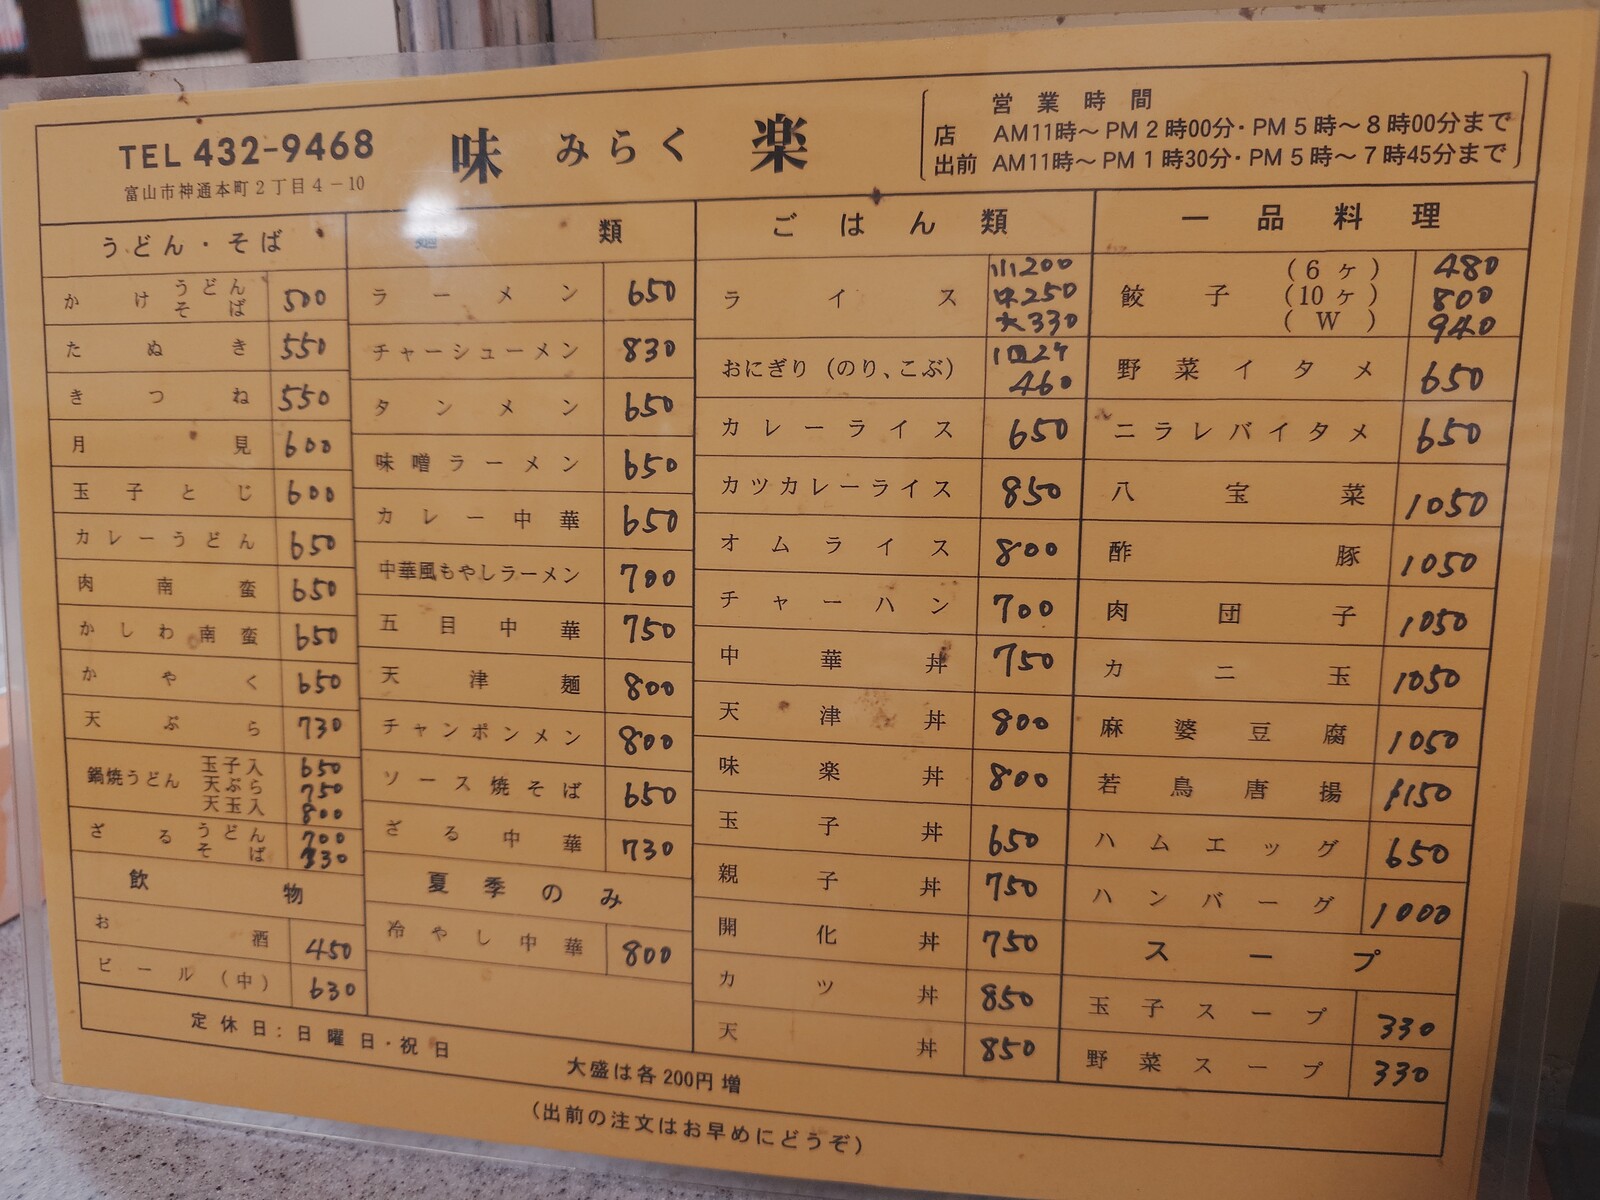 TEL 432-9468
富山市神通本町2丁目4-10
味 みらく 楽
営業時間
店 AM11時〜PM2時00分・PM5時〜8時00分まで
出前 AM11時〜PM1時30分・PM5時〜7時45分まで
うどん・そば
かけ うどん そば 500
たぬき 550
きつね 550
月見 600
玉子とじ 600
カレーうどん 650
肉南蛮 650
かしわ南蛮 650
かやく 650
天ぷら 730
鍋焼うどん 玉子入 650
天ぷら 750
天玉入 800
ざる うどん 700
そば
飲物
お酒 450
ビール(中) 630
麺類
ラーメン 650
チャーシューメン 830
タンメン 650
味噌ラーメン 650
カレー中華 650
中華風もやしラーメン 700
五目中華 750
天津麺 800
チャンポンメン 800
ソース焼そば 650
ざる中華 730
夏季のみ
冷やし中華 800
ごはん類
ライス 小200
中250
大330
おにぎり(のり、こぶ) 1皿2ケ
460
カレーライス 650
カツカレーライス 850
オムライス 800
チャーハン 700
中華丼 750
天津丼 800
味楽丼 800
玉子丼 650
親子丼 750
開化丼 750
カツ丼 850
天丼 850
一品料理
餃子 (6ヶ) 480
(10ヶ) 800
(W) 940
野菜イタメ 650
ニラレバイタメ 650
八宝菜 1050
酢豚 1050
肉団子 1050
カニ玉 1050
麻婆豆腐 1050
若鳥唐揚 1150
ハムエッグ 650
ハンバーグ 1000
スープ
玉子スープ 330
野菜スープ 330
定休日:日曜日・祝日
大盛は各200円増
(出前の注文はお早めにどうぞ)